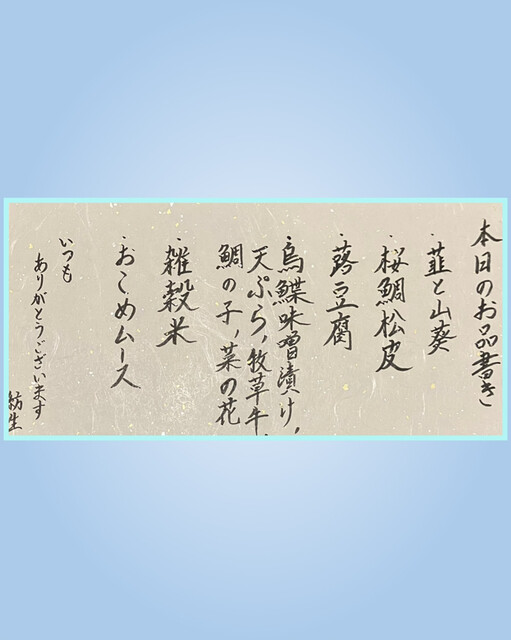 本日のお品書き
・韮と山葵
・桜鯛松皮
・蕗豆腐
・烏鰈味噌漬け，
天ぷら，牧草牛，
鯛の子，菜の花
・雑穀米
・おこめムース
いつも
ありがとうございます
紡生